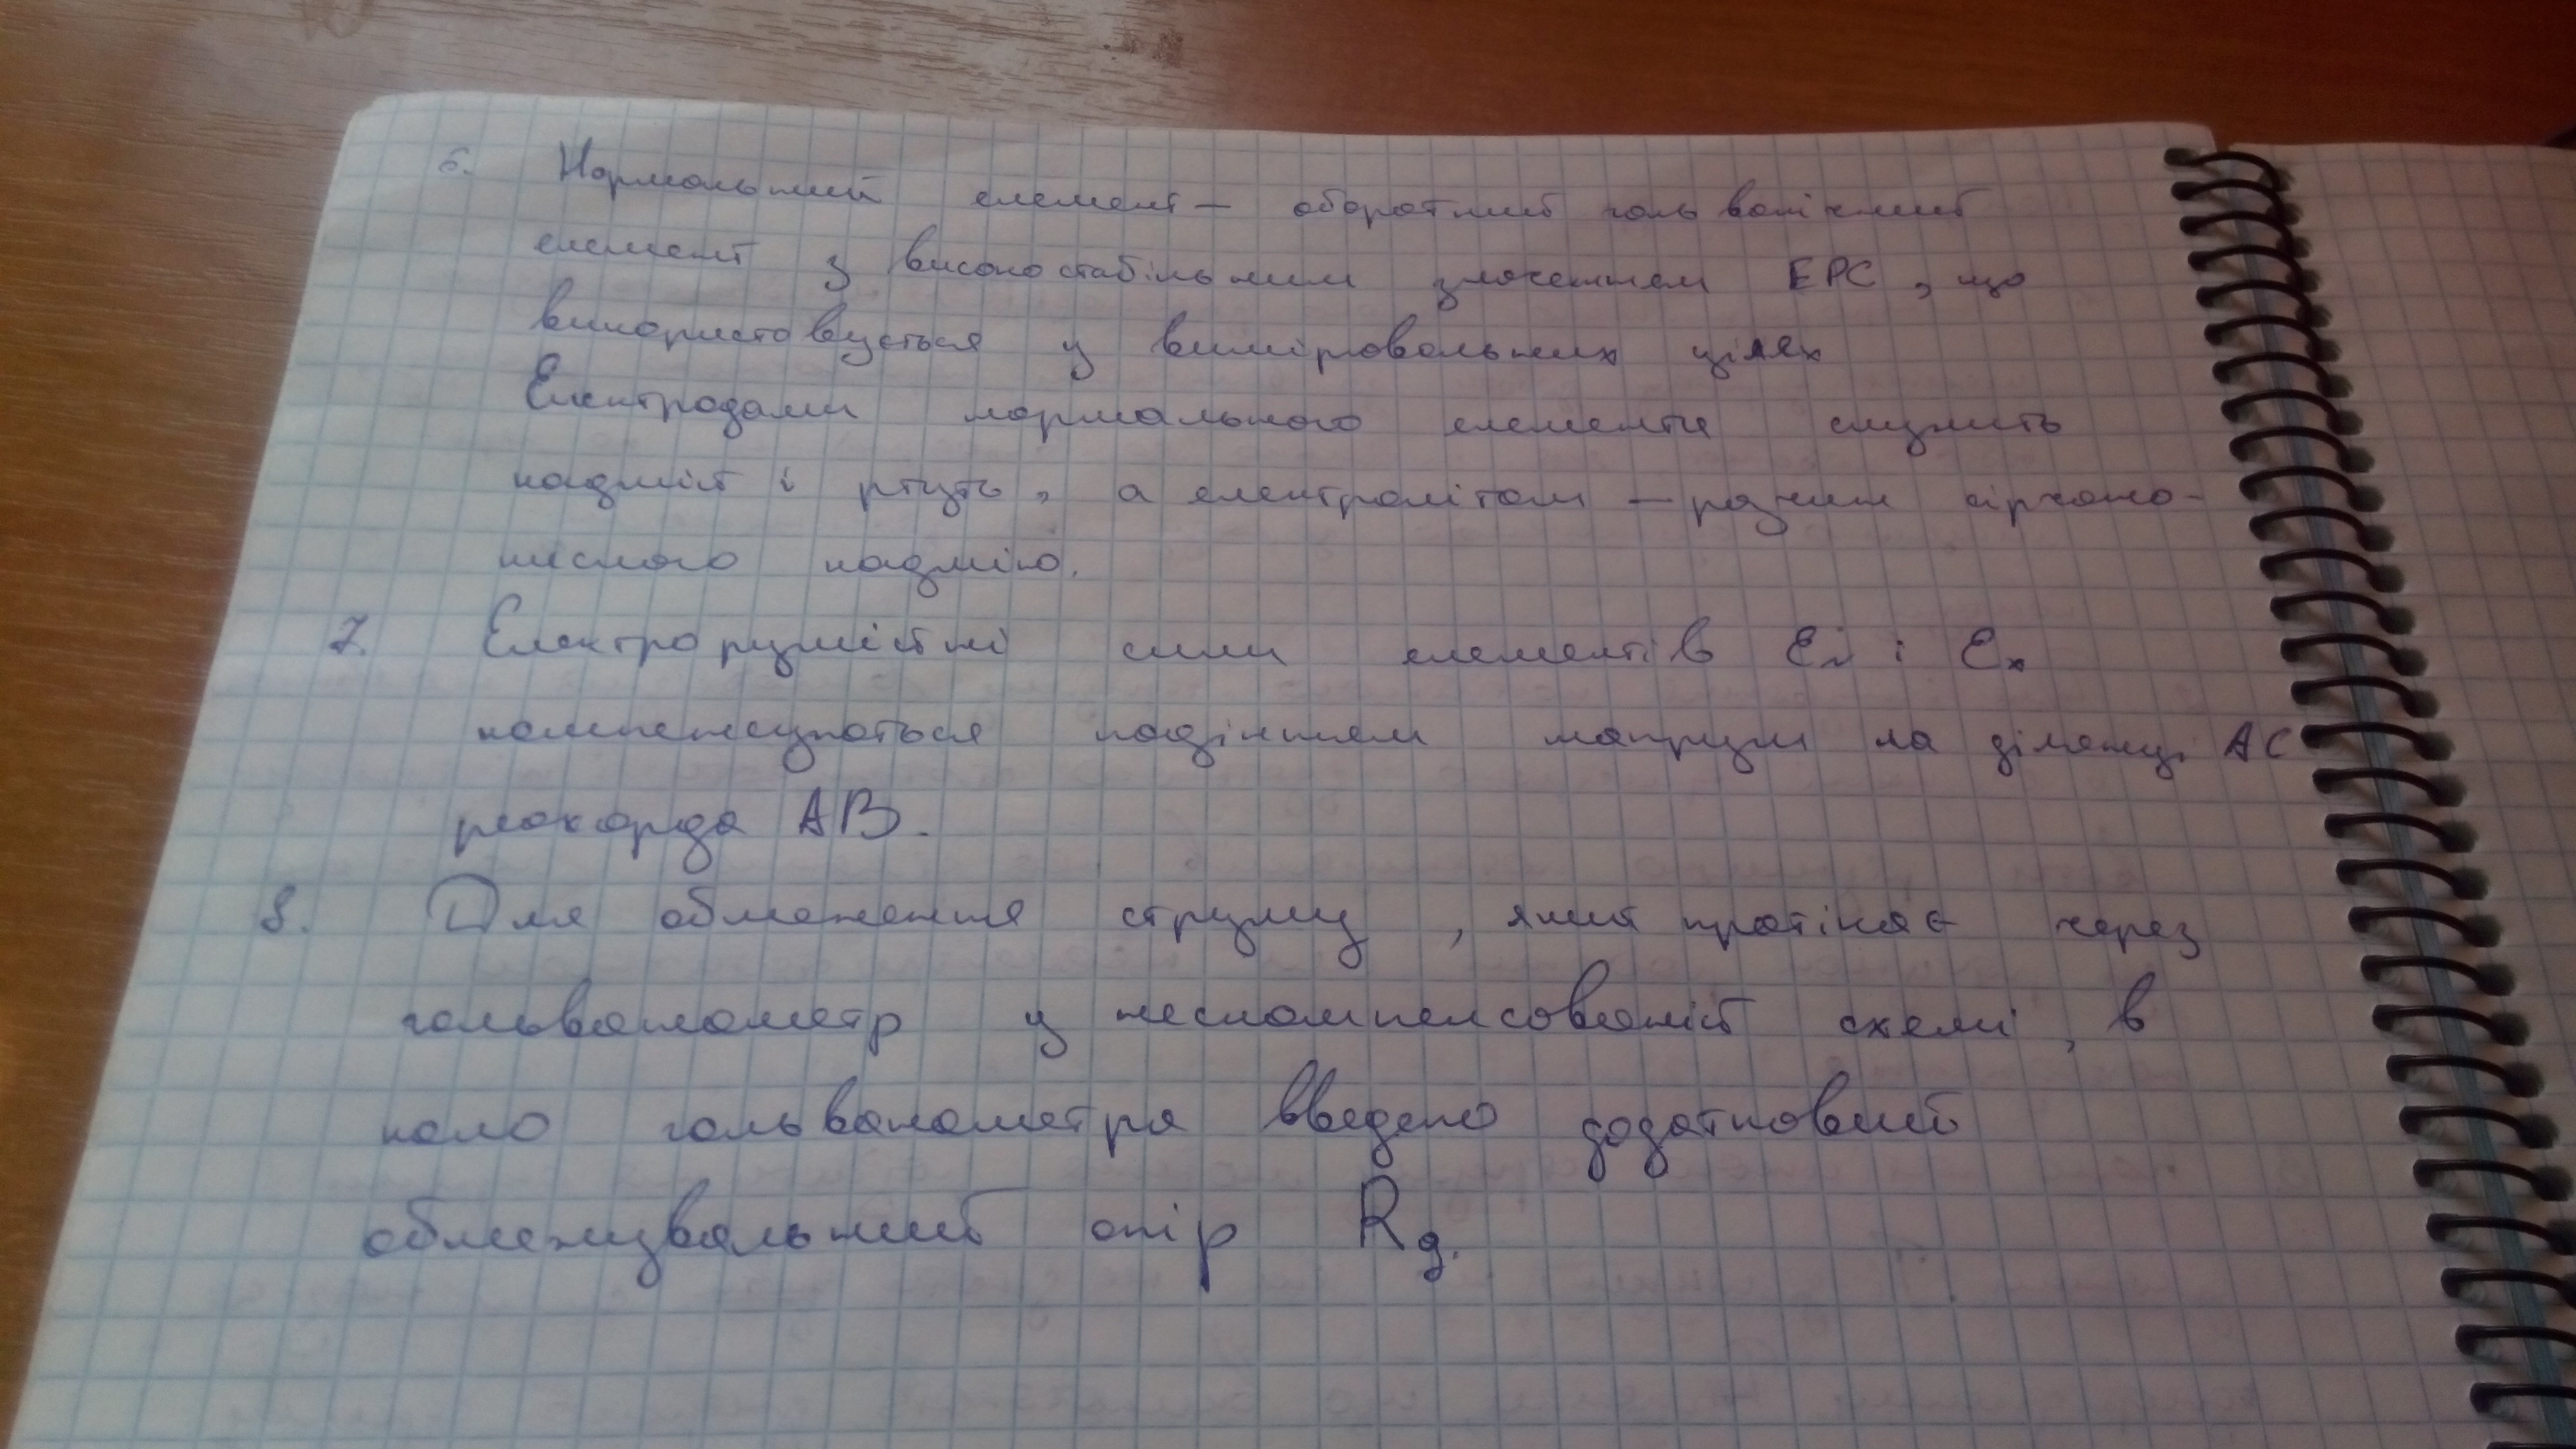 6. Нормальний елемент – оборотний гальванічний
елемент з високостабільним значенням ЕРС, що
використовується у вимірювальних цілях
Електродами нормального елемента служить
кадмій і ртуть, а електролітом – розчин сірчано-
кислого кадмію.
7. Електрорушійні сили елементів ℰN і ℰx
компенсуються падінням напруги на ділянці АС
реохорда АВ.
8. Для обмеження струму, який протікає через
гальванометр у нескомпенсованій схемі, в
коло гальванометра введено додатковий
обмежувальний опір Rg.